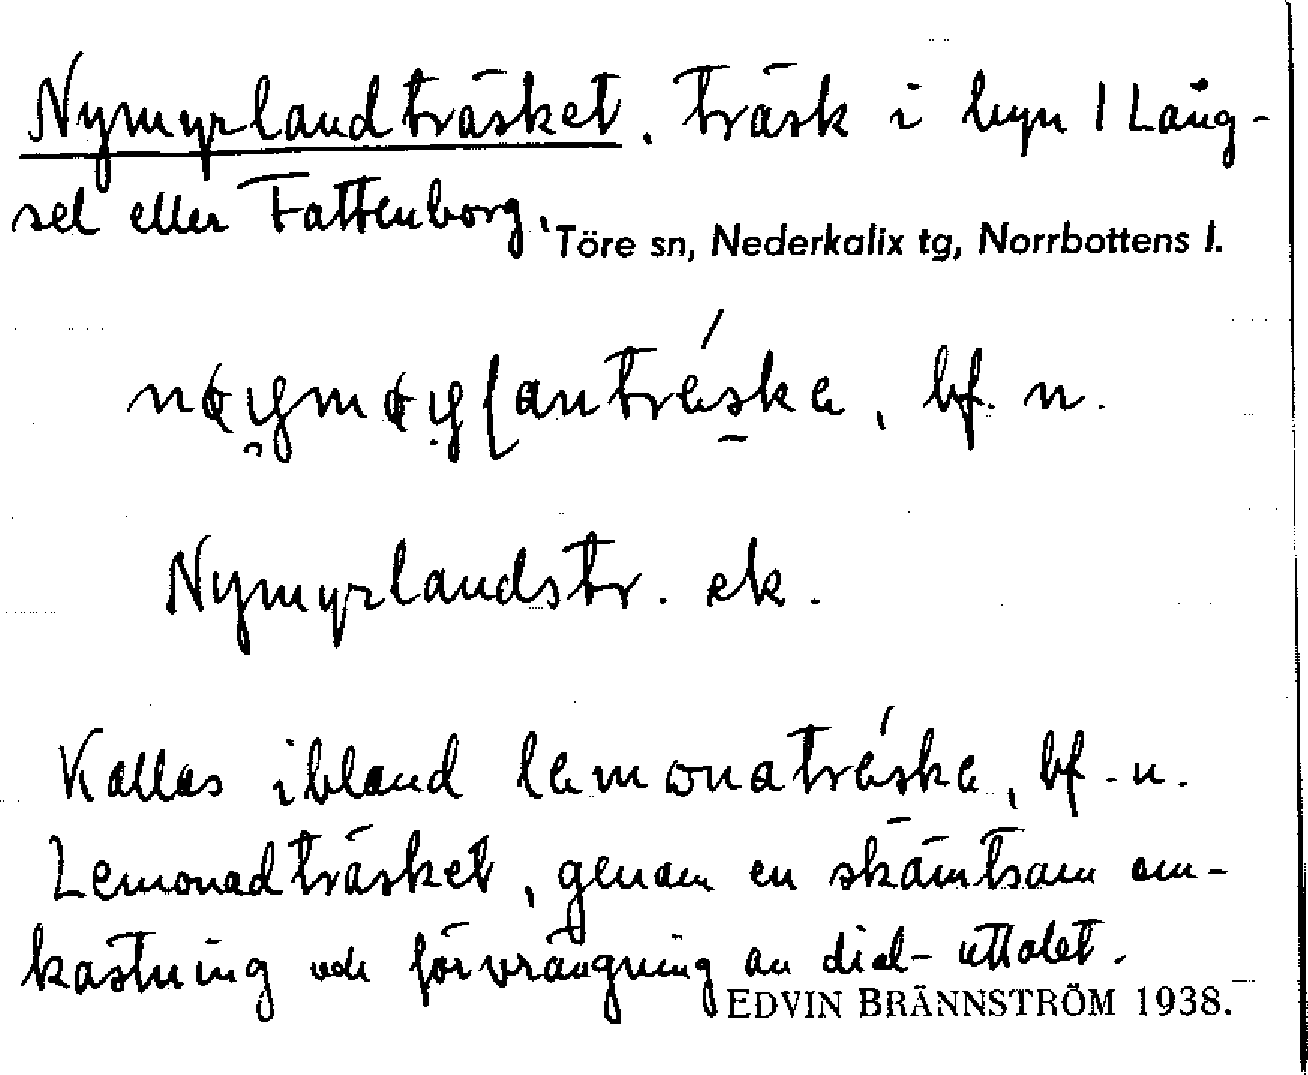 Nymyrlandträsket. Träsk i byn / Lång-
sel eller Tattenborg.
Töre sn, Nederkalix tg, Norrbottens l.
bf. n.
Nymyrlandstr. ek.
Kallas ibland lemonatréske, bf. n.
Lemonadträsket, genom en skämtsam om-
kastning och förvrängning av dial-uttalet.
EDVIN BRÄNNSTRÖM 1938.